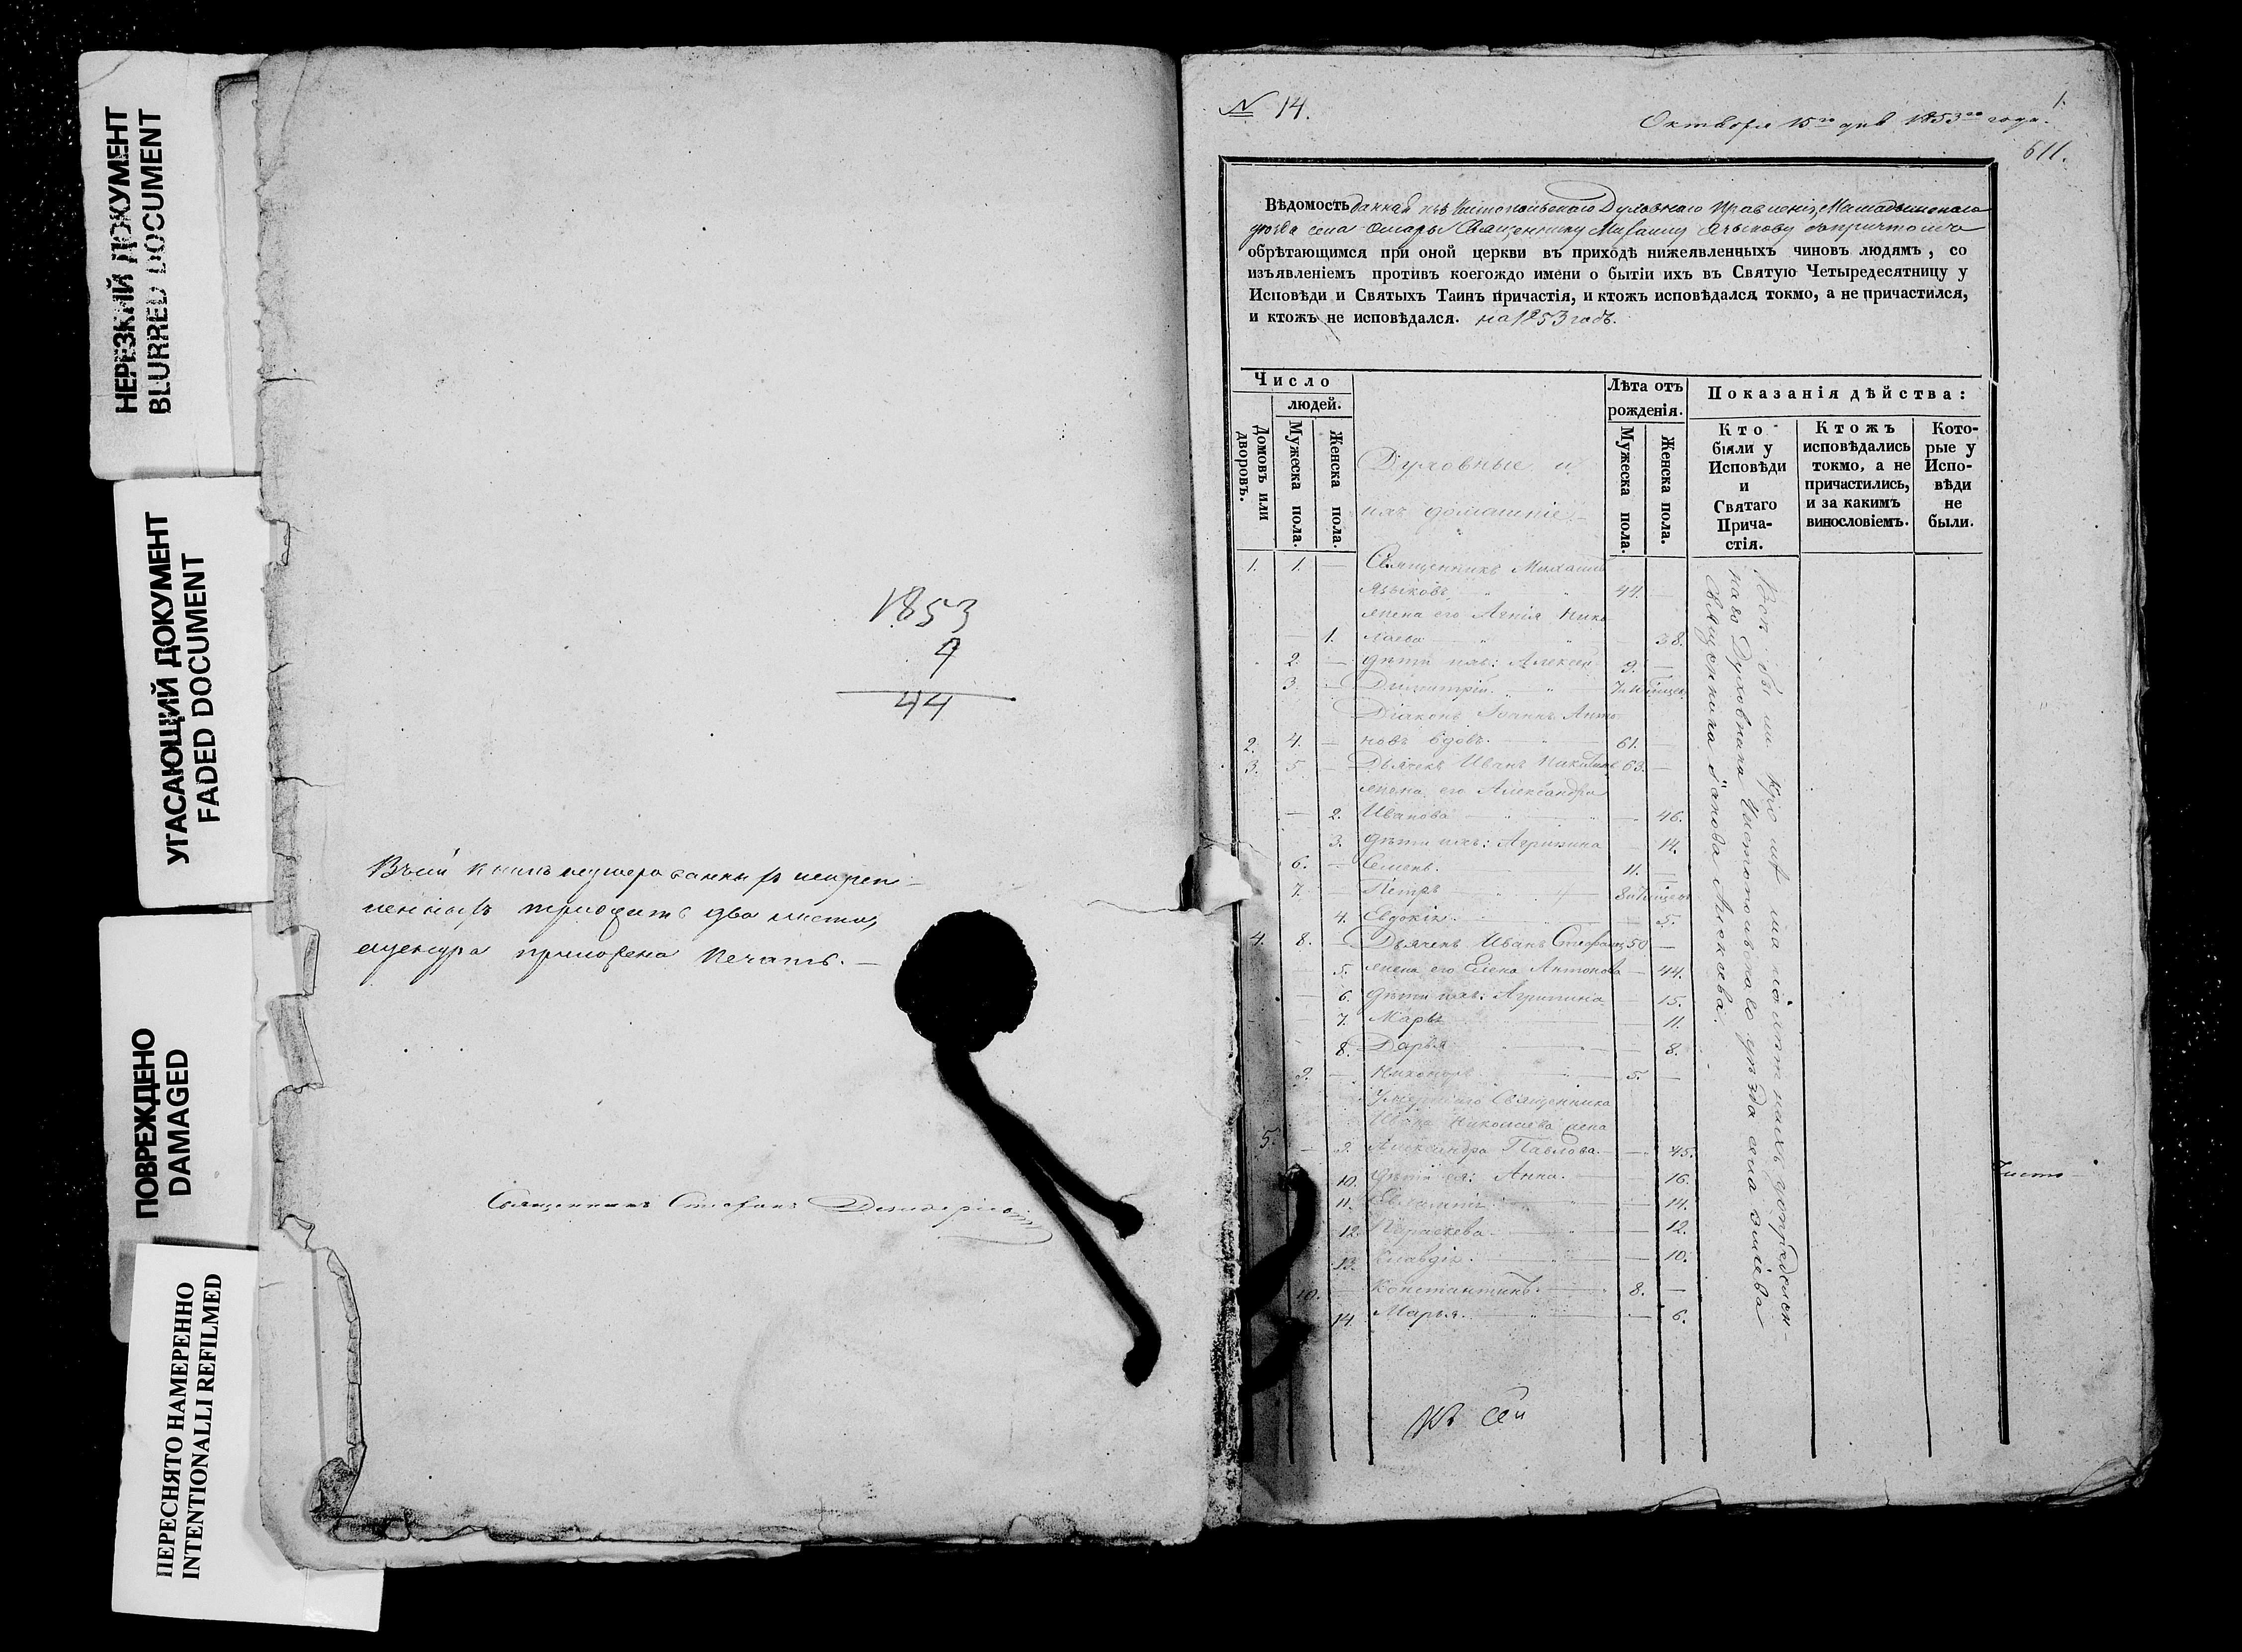 НЕРЕЗКИЙ ДОКУМЕНТ
BLURRED DOCUMENT
УГАСАЮЩИЙ ДОКУМЕНТ
FADED DOCUMENT
ПОВРЕЖДЕНО
DAMAGED
ПЕРЕСНЯТО НАМЕРЕННО
INTENTIONALLI REFILMED
1853
9
44
два листа,
приложена печать.
Священникъ Стефанъ
№ 14.
1.
Октября 15го дня 1853го года.
611.
Вѣдомость данная изъ Чистопольскаго Духовнаго Правленія, Мамадышскаго
уѣзда села Омары Священнику Михаилу Языкову съ причтомъ о
обрѣтающимся при оной церкви въ приходѣ нижеявленныхъ чиновъ людямъ, со
изъявленіемъ противъ коегождо имени о бытіи ихъ въ Святую Четыредесятницу у
Исповѣди и Святыхъ Таинъ Причастія, и ктожъ исповѣдался токмо, а не причастился,
и ктожъ не исповѣдался. на 1853 годъ.
Число
людей.
Домовъ или дворовъ.
Мужеска пола.
Женска пола.
Духовные и
ихъ домашніе
Лѣта отъ
рожденія.
Мужеска пола.
Женска пола.
Показанія дѣйства:
Кто
были у
Исповѣди
и
Святаго
Прича-
стія.
Ктожъ
исповѣдались
токмо, а не
причастились,
и за какимъ
винословіемъ.
Кото-
рые у
Испо-
вѣди
не
были.
1. 1. — Священникъ Михаилъ
Языковъ 44.
жена его Агнія Нико-
— 1. лаева — 38.
2. — дѣти ихъ: Алексѣй 9. —
3. — Димитрій
Діаконъ Іоаннъ Анто-
2. 4. — новъ вдовъ. 61. —
3. 5. — Дьячекъ Иванъ Никитинъ 63. —
жена его Александра
— 2. Иванова — 46.
3. дѣти ихъ: Агрипина — 14.
6. — Семенъ. 11. —
7. — Петръ
4. Евдокія. 5.
4. 8. — Дьячекъ Иванъ Стефановъ 50 —
5. жена его Елена Антонова — 44.
— 6. дѣти ихъ: Агрипина — 15.
7. Марья 11.
8. Дарья — 8.
9. — Никоноръ 5. —
Умершаго Священника
Николаева жена
5. — 9. Александра Павлова. — 45.
10. дѣти ея: Анна. — 16.
11. Евлампія — 14.
12. Параскева. — 12.
13. Клавдія. — 10.
10. — Константинъ. 8. —
14. Марья. — 6.
Всѣ были
у Духовника Чистопольскаго уѣзда села Змѣева
Священника Іакова Люткова.
Къ сей